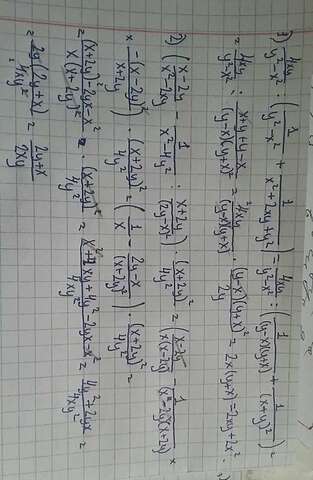 1) 4xy/(y²-x²) : (1/(y²-x²) + 1/(x²+2xy+y²)) = 4xy/(y²-x²) : (1/((y-x)(y+x)) + 1/(x+y)²) =
= 4xy/(y²-x²) : (x+y+y-x)/((y-x)(y+x)²) = 4xy/((y-x)(y+x)) · ((y-x)(y+x)²)/2y = 2x(y+x) = 2xy+2x².
2) ((x-2y)/(x²-2xy) - 1/(x²-4y²) : (x+2y)/(2y-x)²) · (x+2y)²/4y² = ((x-2y)/(x(x-2y)) - 1/((x-2y)(x+2y)) ×
× (-(x-2y))²/(x+2y)) · (x+2y)²/4y² = (1/x - (2y-x)/(x+2y)²) · (x+2y)²/4y² =
= ((x+2y)²-2yx-x²)/(x(x+2y)²) · (x+2y)²/4y² = (x²+4xy+4y²-2yx-x²)/4xy² = (4y²+2yx)/4xy² =
= 2y(2y+x)/4xy² = (2y+x)/2xy